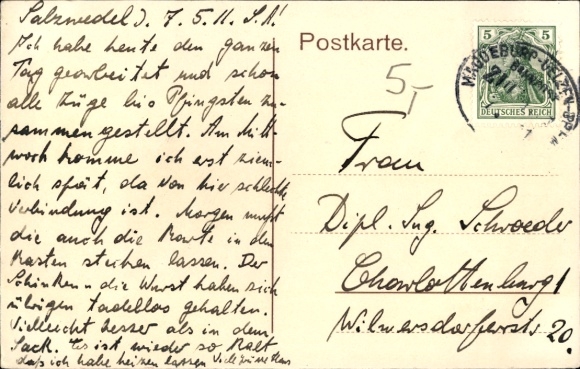 Salzwedel D. 7. 5. 11. S.A!
Ich habe heute den ganzen
Tag gearbeitet und schon
alle Züge bis Pfingsten zu-
sammengestellt. Am Mitt-
woch komme ich erst ziem-
lich spät, da von hier schlechte
Verbindung ist. Morgen mußt
die auch die Karte in den
Kasten stecken lassen. Der
Schinken u die Wurst haben sich
übrigen tadellos gehalten.
Vielleicht besser als in dem
Sack. Es ist wieder so kalt
daß ich habe heizen lassen
Postkarte.
5,-
5 5
DEUTSCHES REICH
MAGDEBURG-UELZEN
Frau
Dipl. Ing. Schroeder
Charlottenburg 1
Wilmersdorferstr 20.